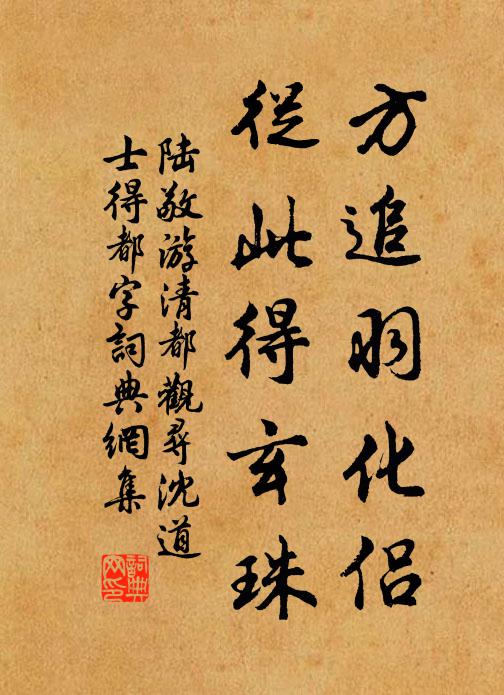 方追羽化侣
從此得玄珠
陆敬游清都觀尋沈道
士得都字詞典網集
詞典网印